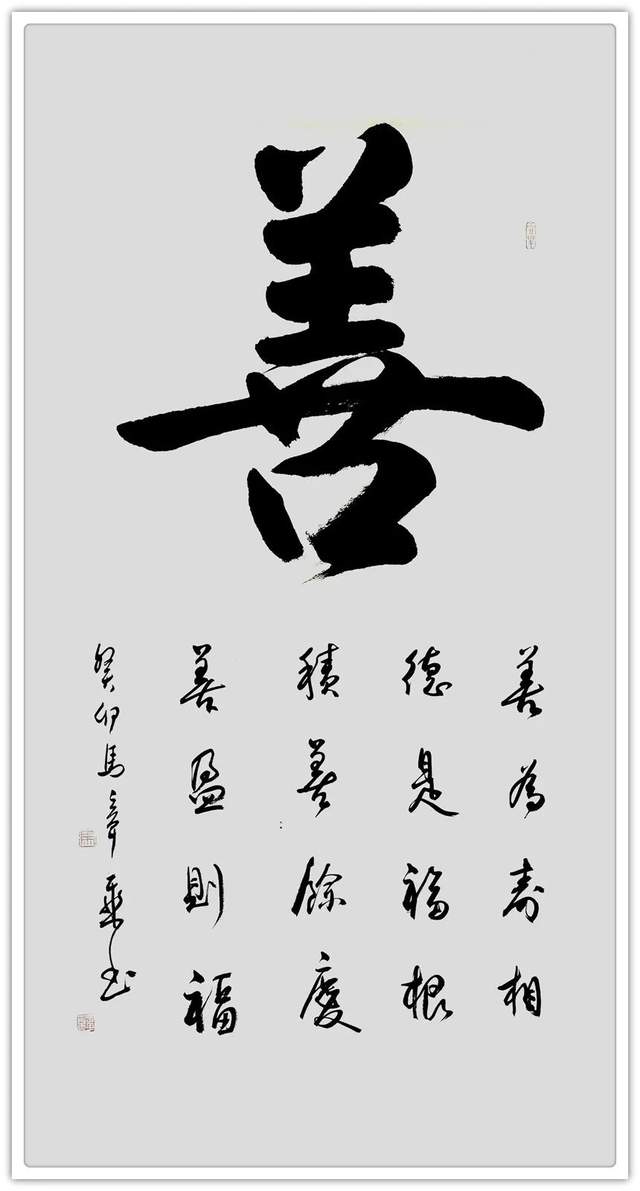 善
善為壽相
德是福根
積善餘慶
善盈則福
癸卯馬章乘书